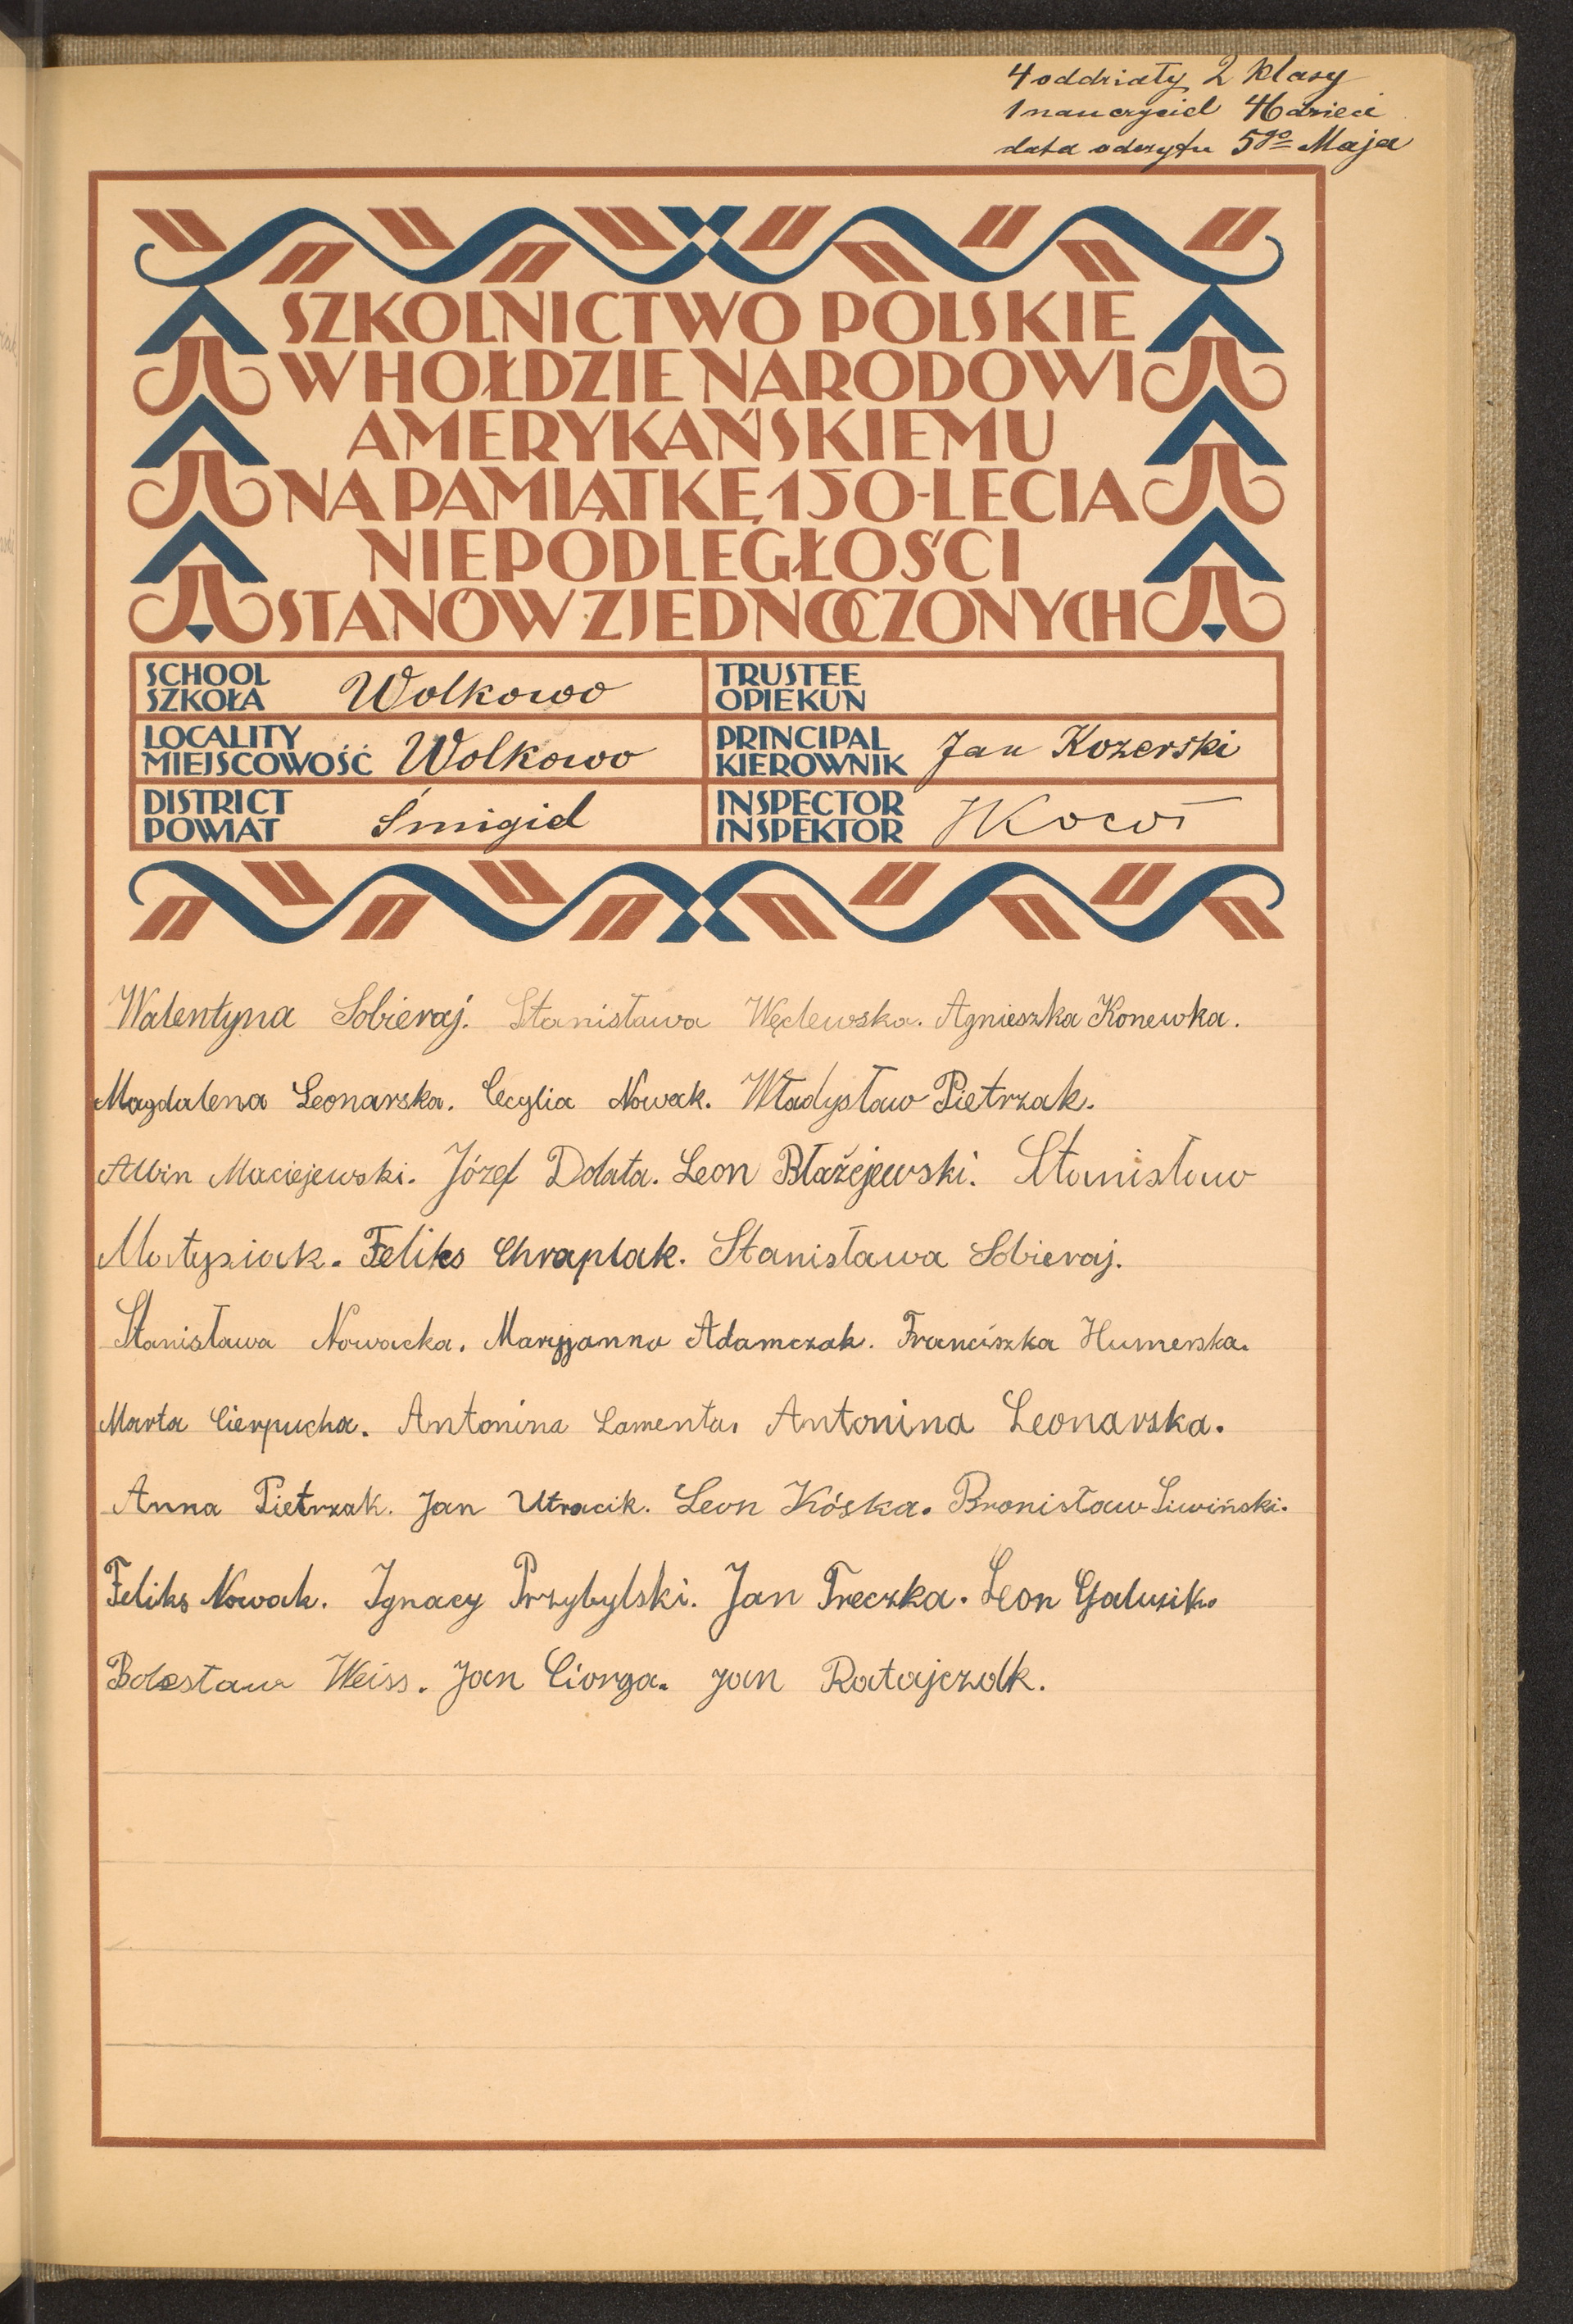 4 oddziały 2 klasy
1 nauczyciel 46 dzieci
data odczytu 5go Maja
SZKOLNICTWO POLSKIE
W HOŁDZIE NARODOWI
AMERYKAŃSKIEMU
NA PAMIĄTKĘ 150-LECIA
NIEPODLEGŁOŚCI
STANÓW ZJEDNOCZONYCH
SCHOOL
SZKOŁA Wolkowo
TRUSTEE
OPIEKUN
LOCALITY
MIEJSCOWOŚĆ Wolkowo
PRINCIPAL
KIEROWNIK Jan Kozerski
DISTRICT
POWIAT Śmigiel
INSPECTOR
INSPEKTOR
Walentyna Sobieraj. Stanisława Węclewska. Agnieszka Konewka.
Magdalena Leonarska. Cecylia Nowak. Władysław Pietrzak.
Albin Maciejewski. Józef Dolata. Leon Błażejewski. Stanisław
Matysiak. Feliks Chraplak. Stanisława Sobieraj.
Stanisława Nowacka. Maryjanna Adamczak. Franciszka Humerska.
Marta Cierpucha. Antonina Lamenta. Antonina Leonarska.
Anna Pietrzak. Jan Utracik. Leon Kóska. Bronisław Liwiński.
Feliks Nowak. Ignacy Przybylski. Jan Treczka. Leon Galusik.
Bolesław Weiss. Jan Ciorga. Jan Ratajczak.